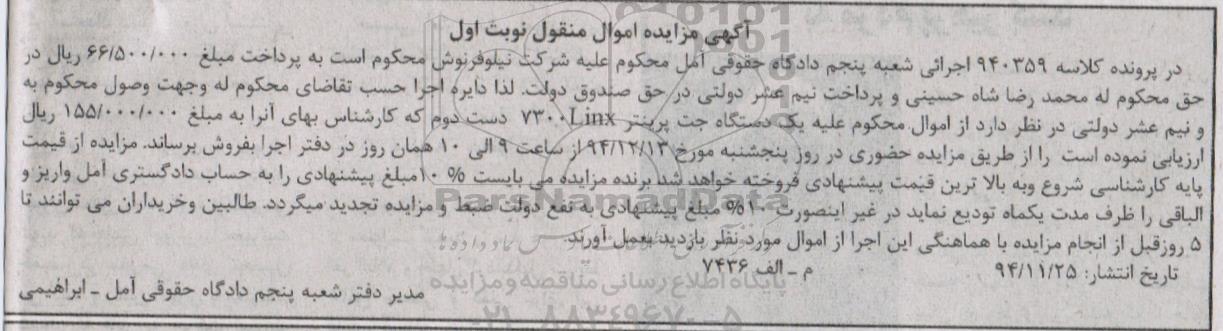 آگهی مزایده اموال منقول نوبت اول
در پرونده کلاسه ۹۴۰۳۵۹ اجرائی شعبه پنجم دادگاه حقوقی آمل محکوم علیه شرکت نیلوفرنوش محکوم است به پرداخت مبلغ ۶۶/۵۰۰/۰۰۰ ریال در
حق محکوم له محمد رضا شاه حسینی و پرداخت نیم عشر دولتی در حق صندوق دولت. لذا دایره اجرا حسب تقاضای محکوم له وجهت وصول محکوم به
و نیم عشر دولتی در نظر دارد از اموال محکوم علیه یک دستگاه جت پرینتر Linx ۷۳۰۰ دست دوم که کارشناس بهای آنرا به مبلغ ۱۵۵/۰۰۰/۰۰۰ ریال
ارزیابی نموده است را از طریق مزایده حضوری در روز پنجشنبه مورخ ۹۴/۱۲/۱۳ از ساعت ۹ الی ۱۰ همان روز در دفتر اجرا بفروش برساند. مزایده از قیمت
پایه کارشناسی شروع وبه بالا ترین قیمت پیشنهادی فروخته خواهد شد برنده مزایده می بایست ۱۰% مبلغ پیشنهادی را به حساب دادگستری آمل واریز و
الباقی را ظرف مدت یکماه تودیع نماید در غیر اینصورت ۱۰% مبلغ پیشنهادی به نفع دولت ضبط و مزایده تجدید میگردد. طالبین وخریداران می توانند تا
۵ روزقبل از انجام مزایده با هماهنگی این اجرا از اموال مورد نظر بازدید بعمل آورند.
تاریخ انتشار: ۹۴/۱۱/۲۵ م ـ الف ۷۴۳۶
مدیر دفتر شعبه پنجم دادگاه حقوقی آمل ـ ابراهیمی
ParsNamadData
پایگاه اطلاع رسانی مناقصه و مزایده
۰۲۱-۸۸۳۴۹۶۷۰-۵